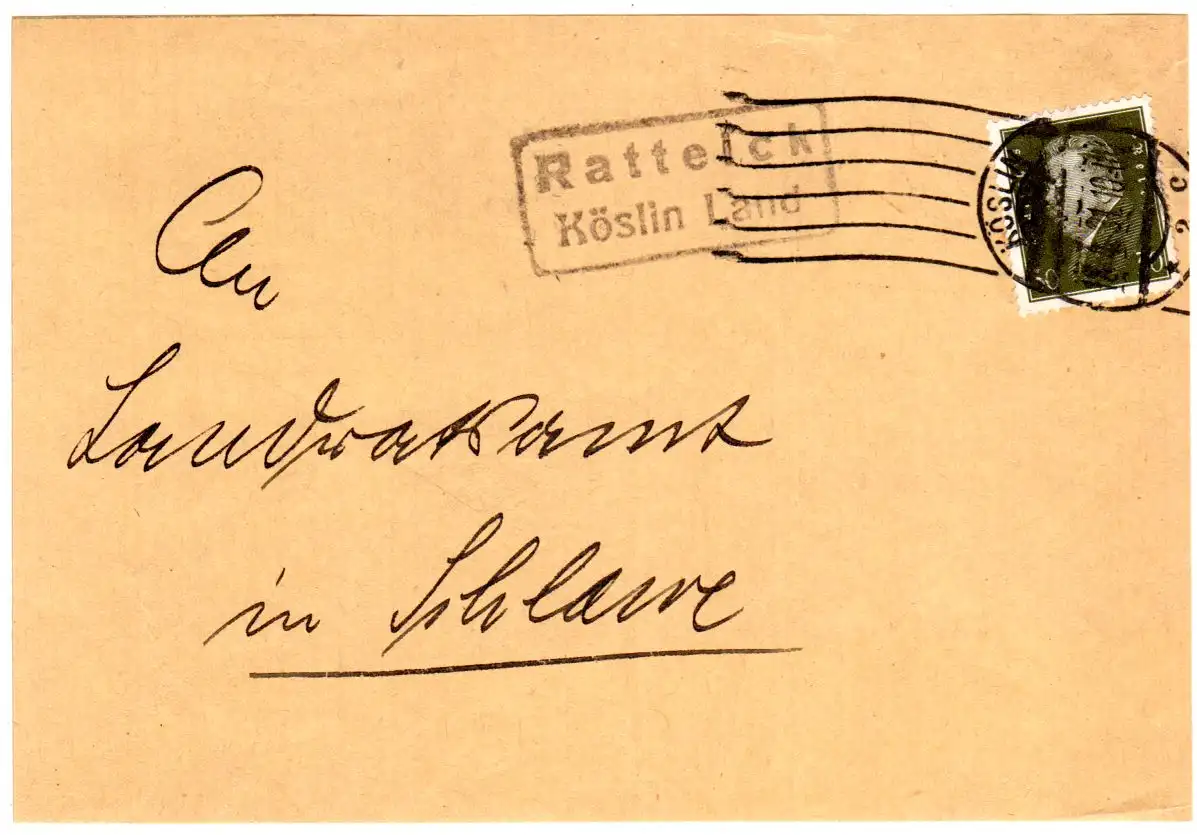 Ratteick
Köslin Land
KÖSLIN
2 c
An
Landratsamt
in Schlawe